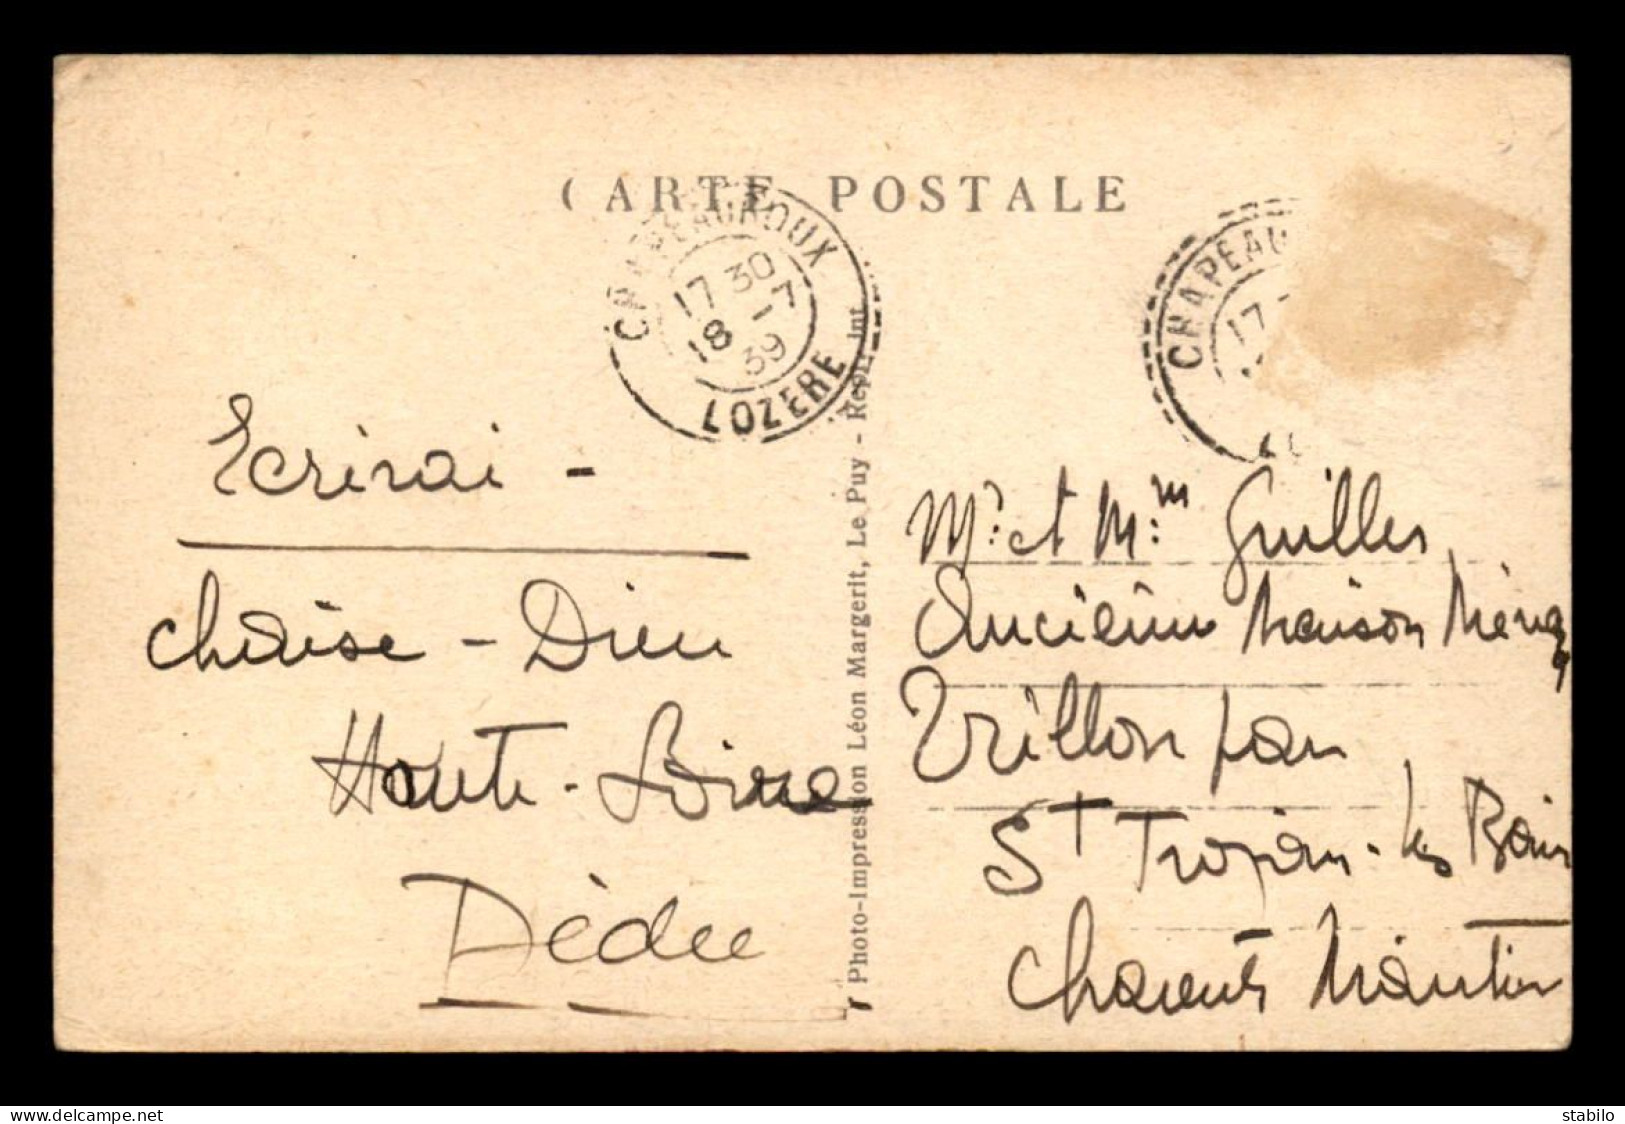 CARTE POSTALE
CHAPEAUROUX
17 30
18 -7
39
LOZERE
CHAPEAU
17
Ecrirai -
Chaise - Dieu
Haute - Loire
Dédée
Photo-Impression Léon Margerit, Le Puy - Repr. Int.
Mr. et M.m Guilles
Ancienne Maison
Vrillon par
St Trojan - les Bains
Charente Maritime
www.delcampe.net
stabilo